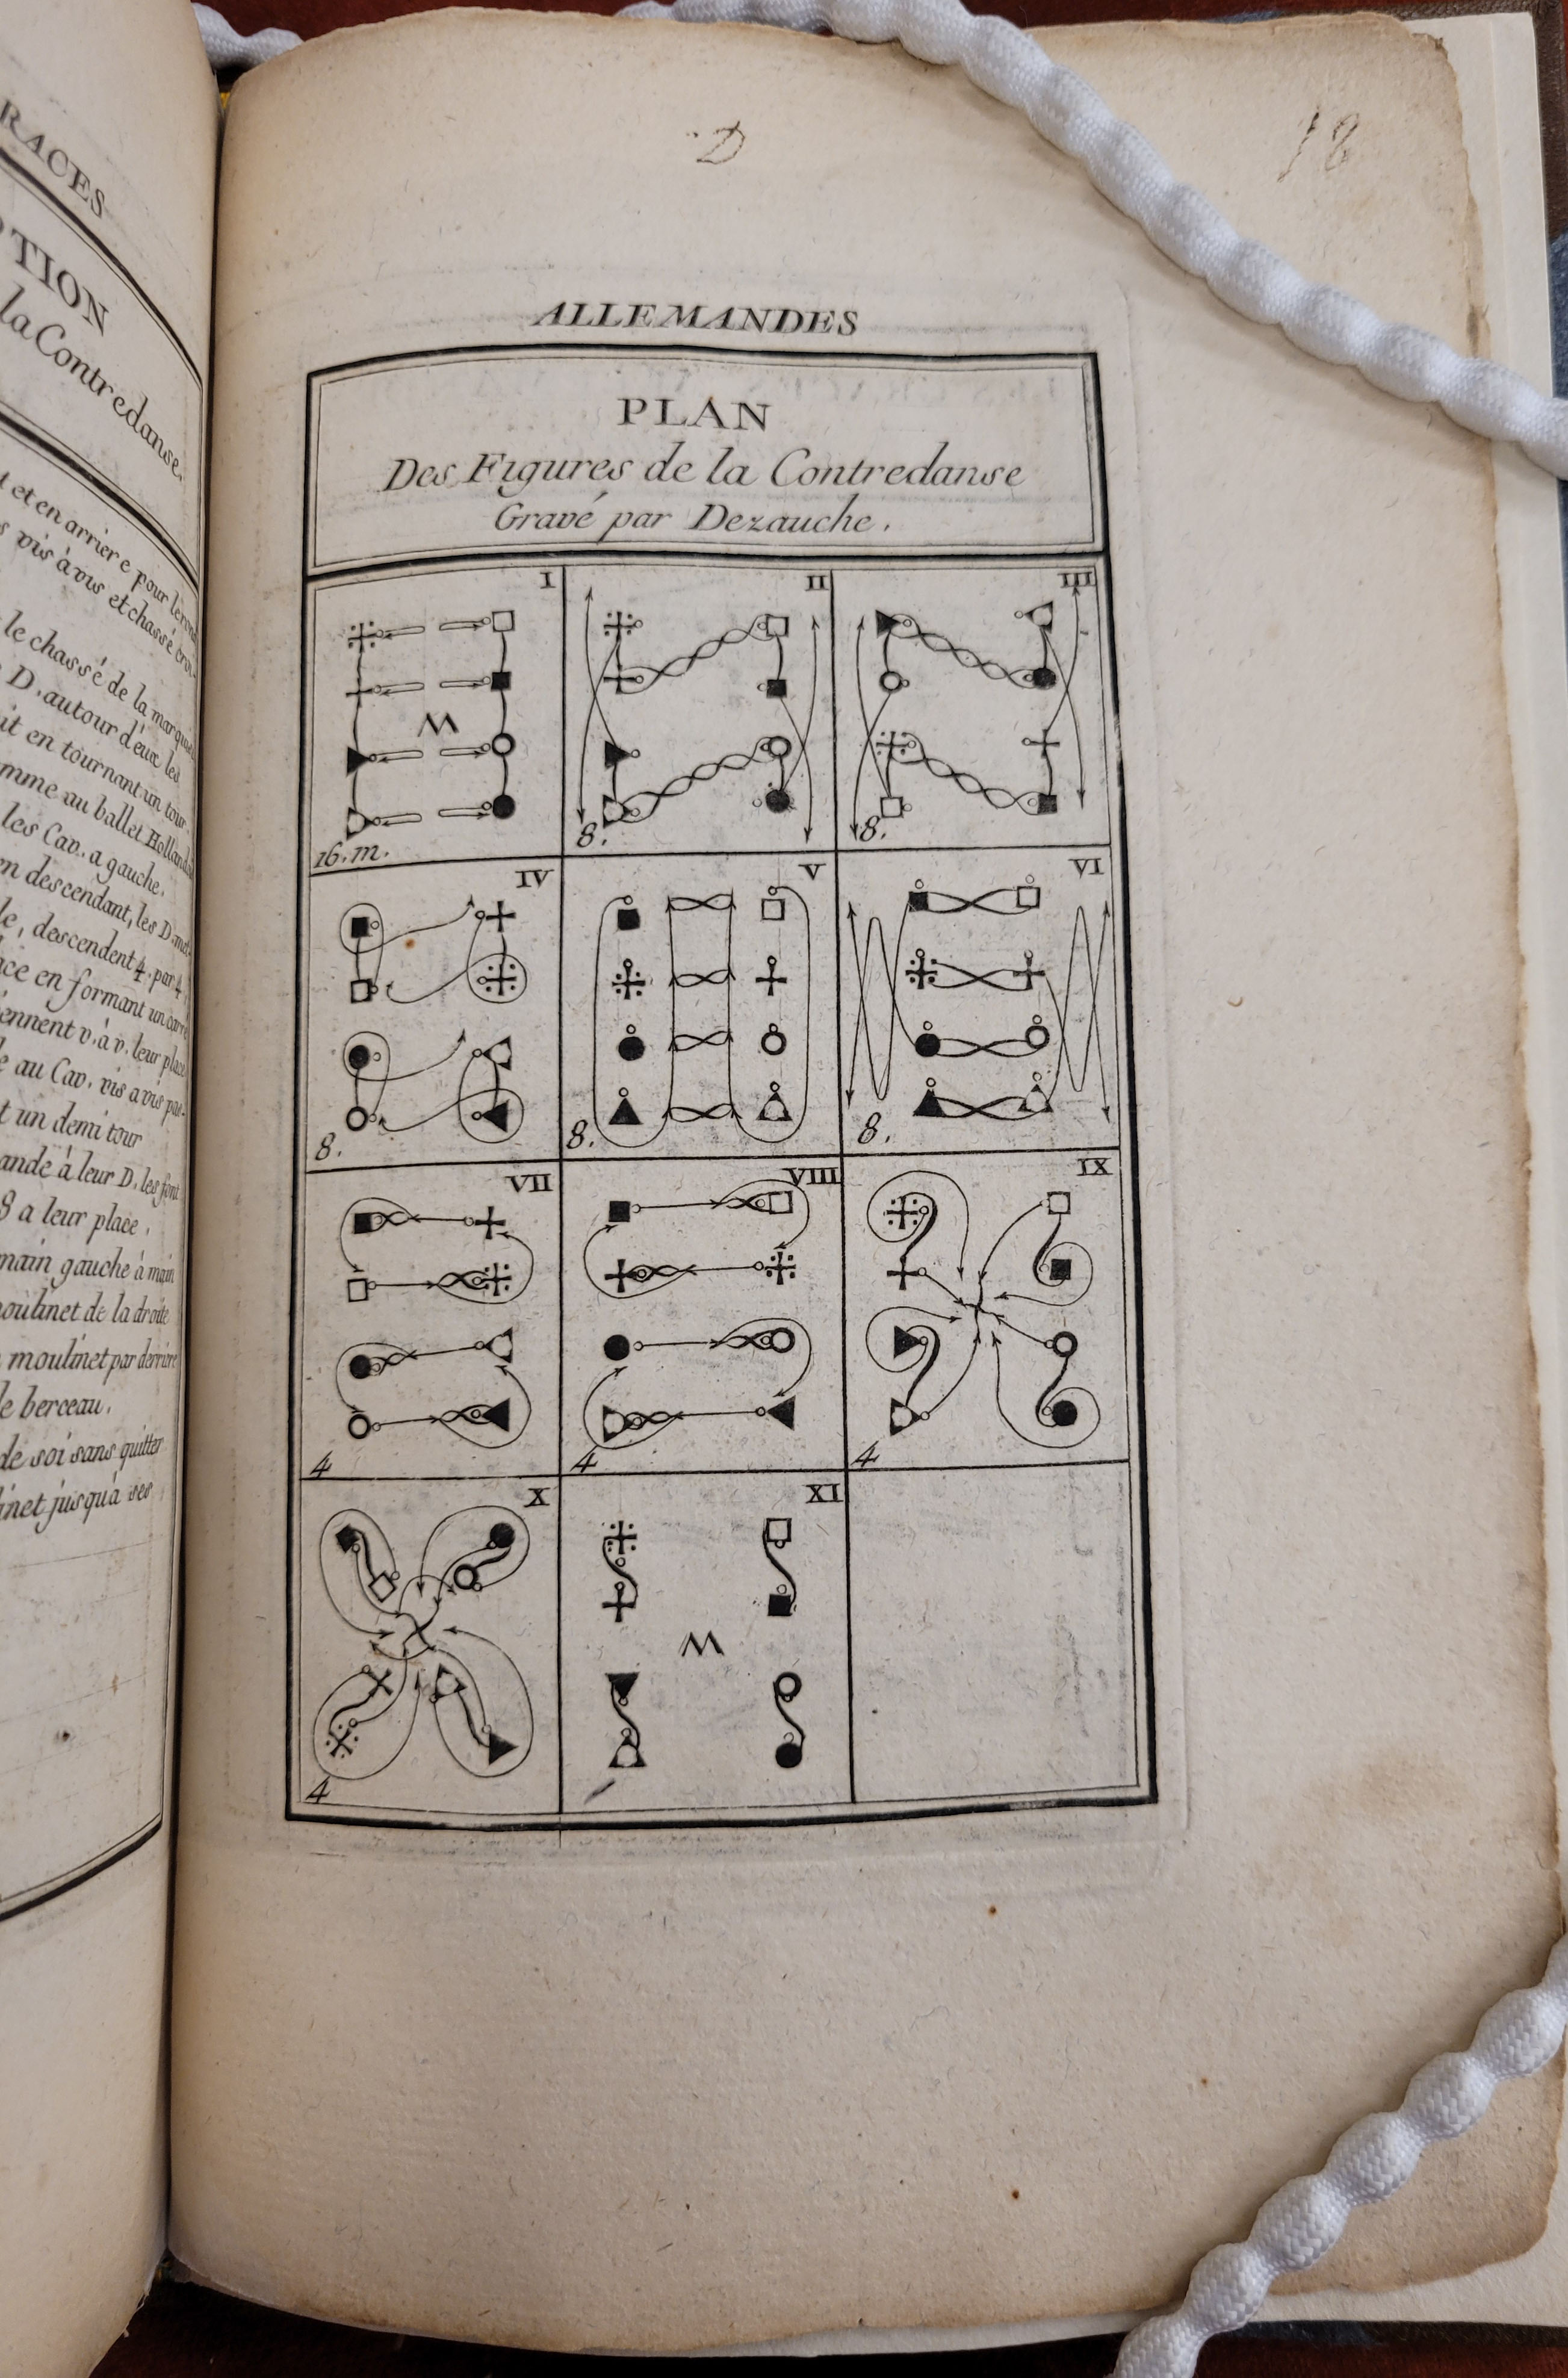 RACES
la Contredanse.
et en arriere pour
vis à vis et chassé
le chassé de la
D. autour d'eux les
it en tournant un tour
mme au ballet
les Cav. a gauche.
en descendant, les D.
le, descendent 4. par 4
ace en formant un
ennent v. à v. leur place
e au Cav. vis a vis
t un demi tour
ande à leur D. les font
8 a leur place.
main gauche à main
moulinet de la droite
moulinet par derriere
le berceau.
de soi sans quitter
inet jusqu'à ses
D
18
ALLEMANDES
PLAN
Des Figures de la Contredanse
Gravé par Dezauche.
I
16. m.
II
8.
III
8.
IV
8.
V
8.
VI
8.
VII
4
VIII
4
IX
4
X
4
XI